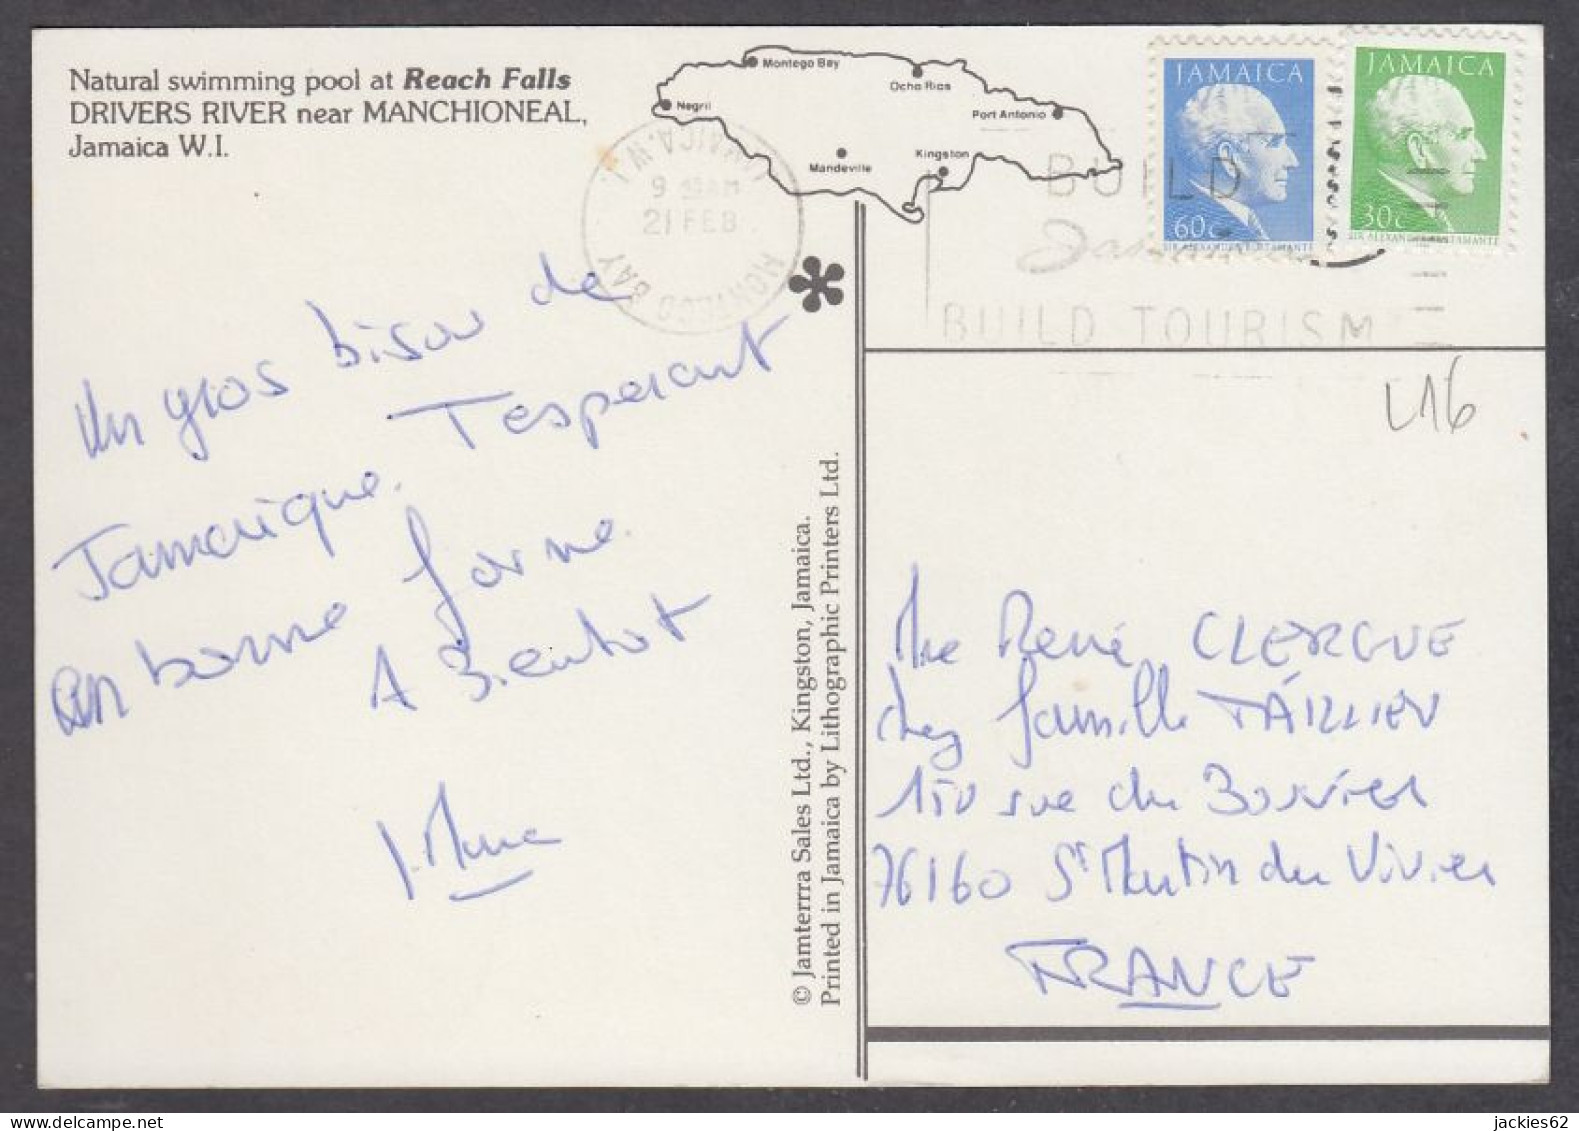 Natural swimming pool at Reach Falls
DRIVERS RIVER near MANCHIONEAL,
Jamaica W.I.
Montego Bay
Negril
Ocho Rios
Port Antonio
Mandeville
Kingston
JAMAICA
60c
SIR ALEXANDER BUSTAMANTE
JAMAICA
30c
SIR ALEXANDER BUSTAMANTE
JAMAICA. W.I.
9 AM
21 FEB
MONTEGO BAY
BUILD
Jamaica
BUILD TOURISM
L16
Un gros bisou de
Jamaïque. J'esperant
en bonne forme
A Bientot
© Jamterrra Sales Ltd., Kingston, Jamaica.
Printed in Jamaica by Lithographic Printers Ltd.
Me René CLERGUE
chez famille TAILLIEU
150 rue du
76160 St Martin du Vivier
FRANCE
jackies62